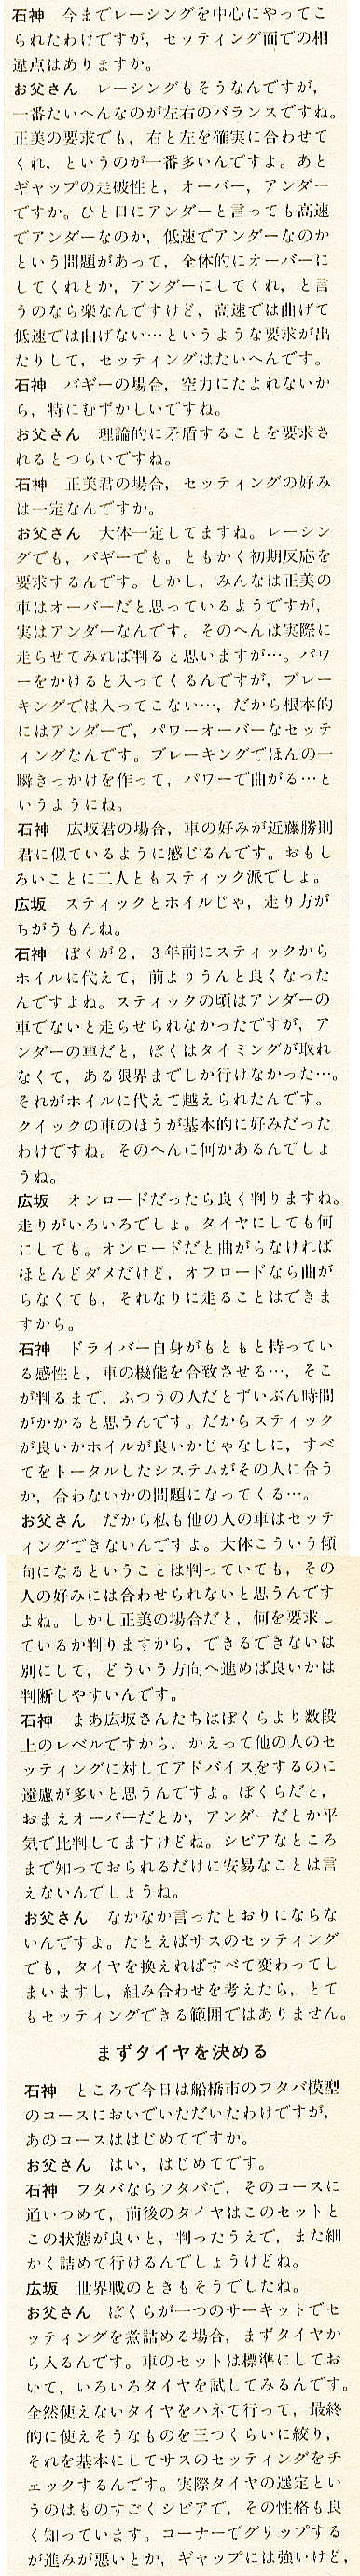 石神　今までレーシングを中心にやってこ
られたわけですが，セッティング面での相
違点はありますか。
お父さん　レーシングもそうなんですが，
一番たいへんなのが左右のバランスですね。
正美の要求でも，右と左を確実に合わせて
くれ，というのが一番多いんですよ。あと
ギャップの走破性と，オーバー，アンダー
ですか。ひと口にアンダーと言っても高速
でアンダーなのか，低速でアンダーなのか
という問題があって，全体的にオーバーに
してくれとか，アンダーにしてくれ，と言
うのなら楽なんですけど，高速では曲げて
低速では曲げない…というような要求が出
たりして，セッティングはたいへんです。
石神　バギーの場合，空力にたよれないか
ら，特にむずかしいですね。
お父さん　理論的に矛盾することを要求さ
れるとつらいですね。
石神　正美君の場合，セッティングの好み
は一定なんですか。
お父さん　大体一定してますね。レーシン
グでも，バギーでも。ともかく初期反応を
要求するんです。しかし，みんなは正美の
車はオーバーだと思っているようですが，
実はアンダーなんです。そのへんは実際に
走らせてみれば判ると思いますが…。パワ
ーをかけると入ってくるんですが，ブレー
キングでは入ってこない…，だから根本的
にはアンダーで，パワーオーバーなセッテ
ィングなんです。ブレーキングでほんの一
瞬きっかけを作って，パワーで曲がる…と
いうようにね。
石神　広坂君の場合，車の好みが近藤勝則
君に似ているように感じるんです。おもし
ろいことに二人ともスティック派でしょ。
広坂　スティックとホイルじゃ，走り方が
ちがうもんね。
石神　ぼくが２，３年前にスティックから
ホイルに代えて，前よりうんと良くなった
んですよね。スティックの頃はアンダーの
車でないと走らせられなかったですが，ア
ンダーの車だと，ぼくはタイミングが取れ
なくて，ある限界までしか行けなかった…。
それがホイルに代えて越えられたんです。
クイックの車のほうが基本的に好みだった
わけですね。そのへんに何かあるんでしょ
うね。
広坂　オンロードだったら良く判りますね。
走りがいろいろでしょ。タイヤにしても何
にしても。オンロードだと曲がらなければ
ほとんどダメだけど，オフロードなら曲が
らなくても，それなりに走ることはできま
すから。
石神　ドライバー自身がもともと持ってい
る感性と，車の機能を合致させる…，そこ
が判るまで，ふつうの人だとずいぶん時間
がかかると思うんです。だからスティック
が良いかホイルが良いかじゃなしに，すべ
てをトータルしたシステムがその人に合う
か，合わないかの問題になってくる…。
お父さん　だから私も他の人の車はセッテ
ィングできないんですよ。大体こういう傾
向になるということは判っていても，その
人の好みには合わせられないと思うんです
よね。しかし正美の場合だと，何を要求し
ているか判りますから，できるできないは
別にして，どういう方向へ進めば良いかは
判断しやすいんです。
石神　まあ広坂さんたちはぼくらより数段
上のレベルですから，かえって他の人のセ
ッティングに対してアドバイスをするのに
遠慮が多いと思うんですよ。ぼくらだと，
おまえオーバーだとか，アンダーだとか平
気で比判してますけどね。シビアなところ
まで知っておられるだけに安易なことは言
えないんでしょうね。
お父さん　なかなか言ったとおりにならな
いんですよ。たとえばサスのセッティング
でも，タイヤを換えればすべて変わってし
まいますし，組み合わせを考えたら，とて
もセッティングできる範囲ではありません。
まずタイヤを決める
石神　ところで今日は船橋市のフタバ模型
のコースにおいでいただいたわけですが，
あのコースははじめてですか。
お父さん　はい，はじめてです。
石神　フタバならフタバで，そのコースに
通いつめて，前後のタイヤはこのセットと
この状態が良いと，判ったうえで，また細
かく詰めて行けるんでしょうけどね。
広坂　世界戦のときもそうでしたね。
お父さん　ぼくらが一つのサーキットでセ
ッティングを煮詰める場合，まずタイヤか
ら入るんです。車のセットは標準にしてお
いて，いろいろタイヤを試してみるんです。
全然使えないタイヤをハネて行って，最終
的に使えそうなものを三つくらいに絞り，
それを基本にしてサスのセッティングをチ
ェックするんです。実際タイヤの選定とい
うのはものすごくシビアで，その性格も良
く知っています。コーナーでグリップする
が進みが悪いとか，ギャップには強いけど，